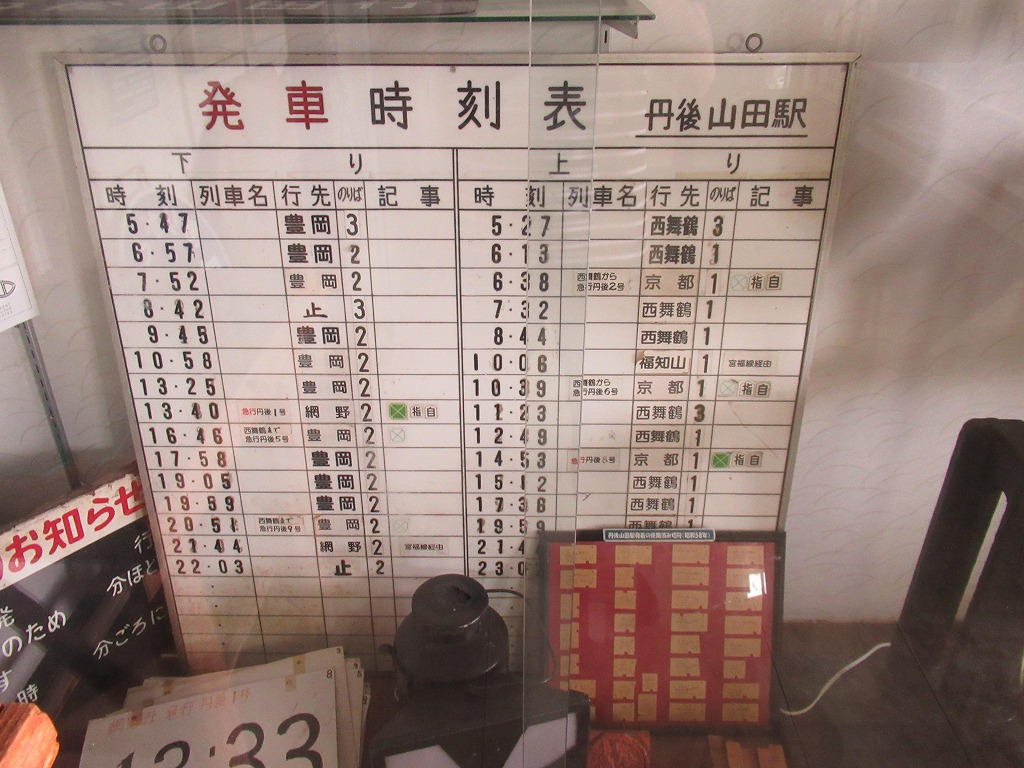 発車時刻表 丹後山田駅
下り 上り
時刻 列車名 行先 のりば 記事 時刻 列車名 行先 のりば 記事
5・47 豊岡 3 5・27 西舞鶴 3
6・57 豊岡 2 6・13 西舞鶴 1
7・52 豊岡 2 6・38 西舞鶴から 急行丹後2号 京都 1 指自
8・42 止 3 7・32 西舞鶴 1
9・45 豊岡 2 8・44 西舞鶴 1
10・58 豊岡 2 10・06 福知山 1 宮福線経由
13・25 豊岡 2 10・39 西舞鶴から 急行丹後6号 京都 1 指自
13・40 急行丹後1号 網野 2 指自 11・23 西舞鶴 3
16・46 西舞鶴まで 急行丹後5号 豊岡 2 12・49 西舞鶴 1
17・58 豊岡 2 14・53 急行丹後8号 京都 1 指自
19・05 豊岡 2 15・12 西舞鶴 1
19・59 豊岡 2 17・36 西舞鶴 1
20・51 西舞鶴まで 急行丹後9号 豊岡 2 19・59 西舞鶴
21・44 網野 2 宮福線経由 21・4
22・03 止 2 23・0
丹後山田駅発着の使用済み切符(昭和58年)
のお知らせ
行
分ほど
発
のため
分ごろに
す
時
急行 丹後1号
8
13:33